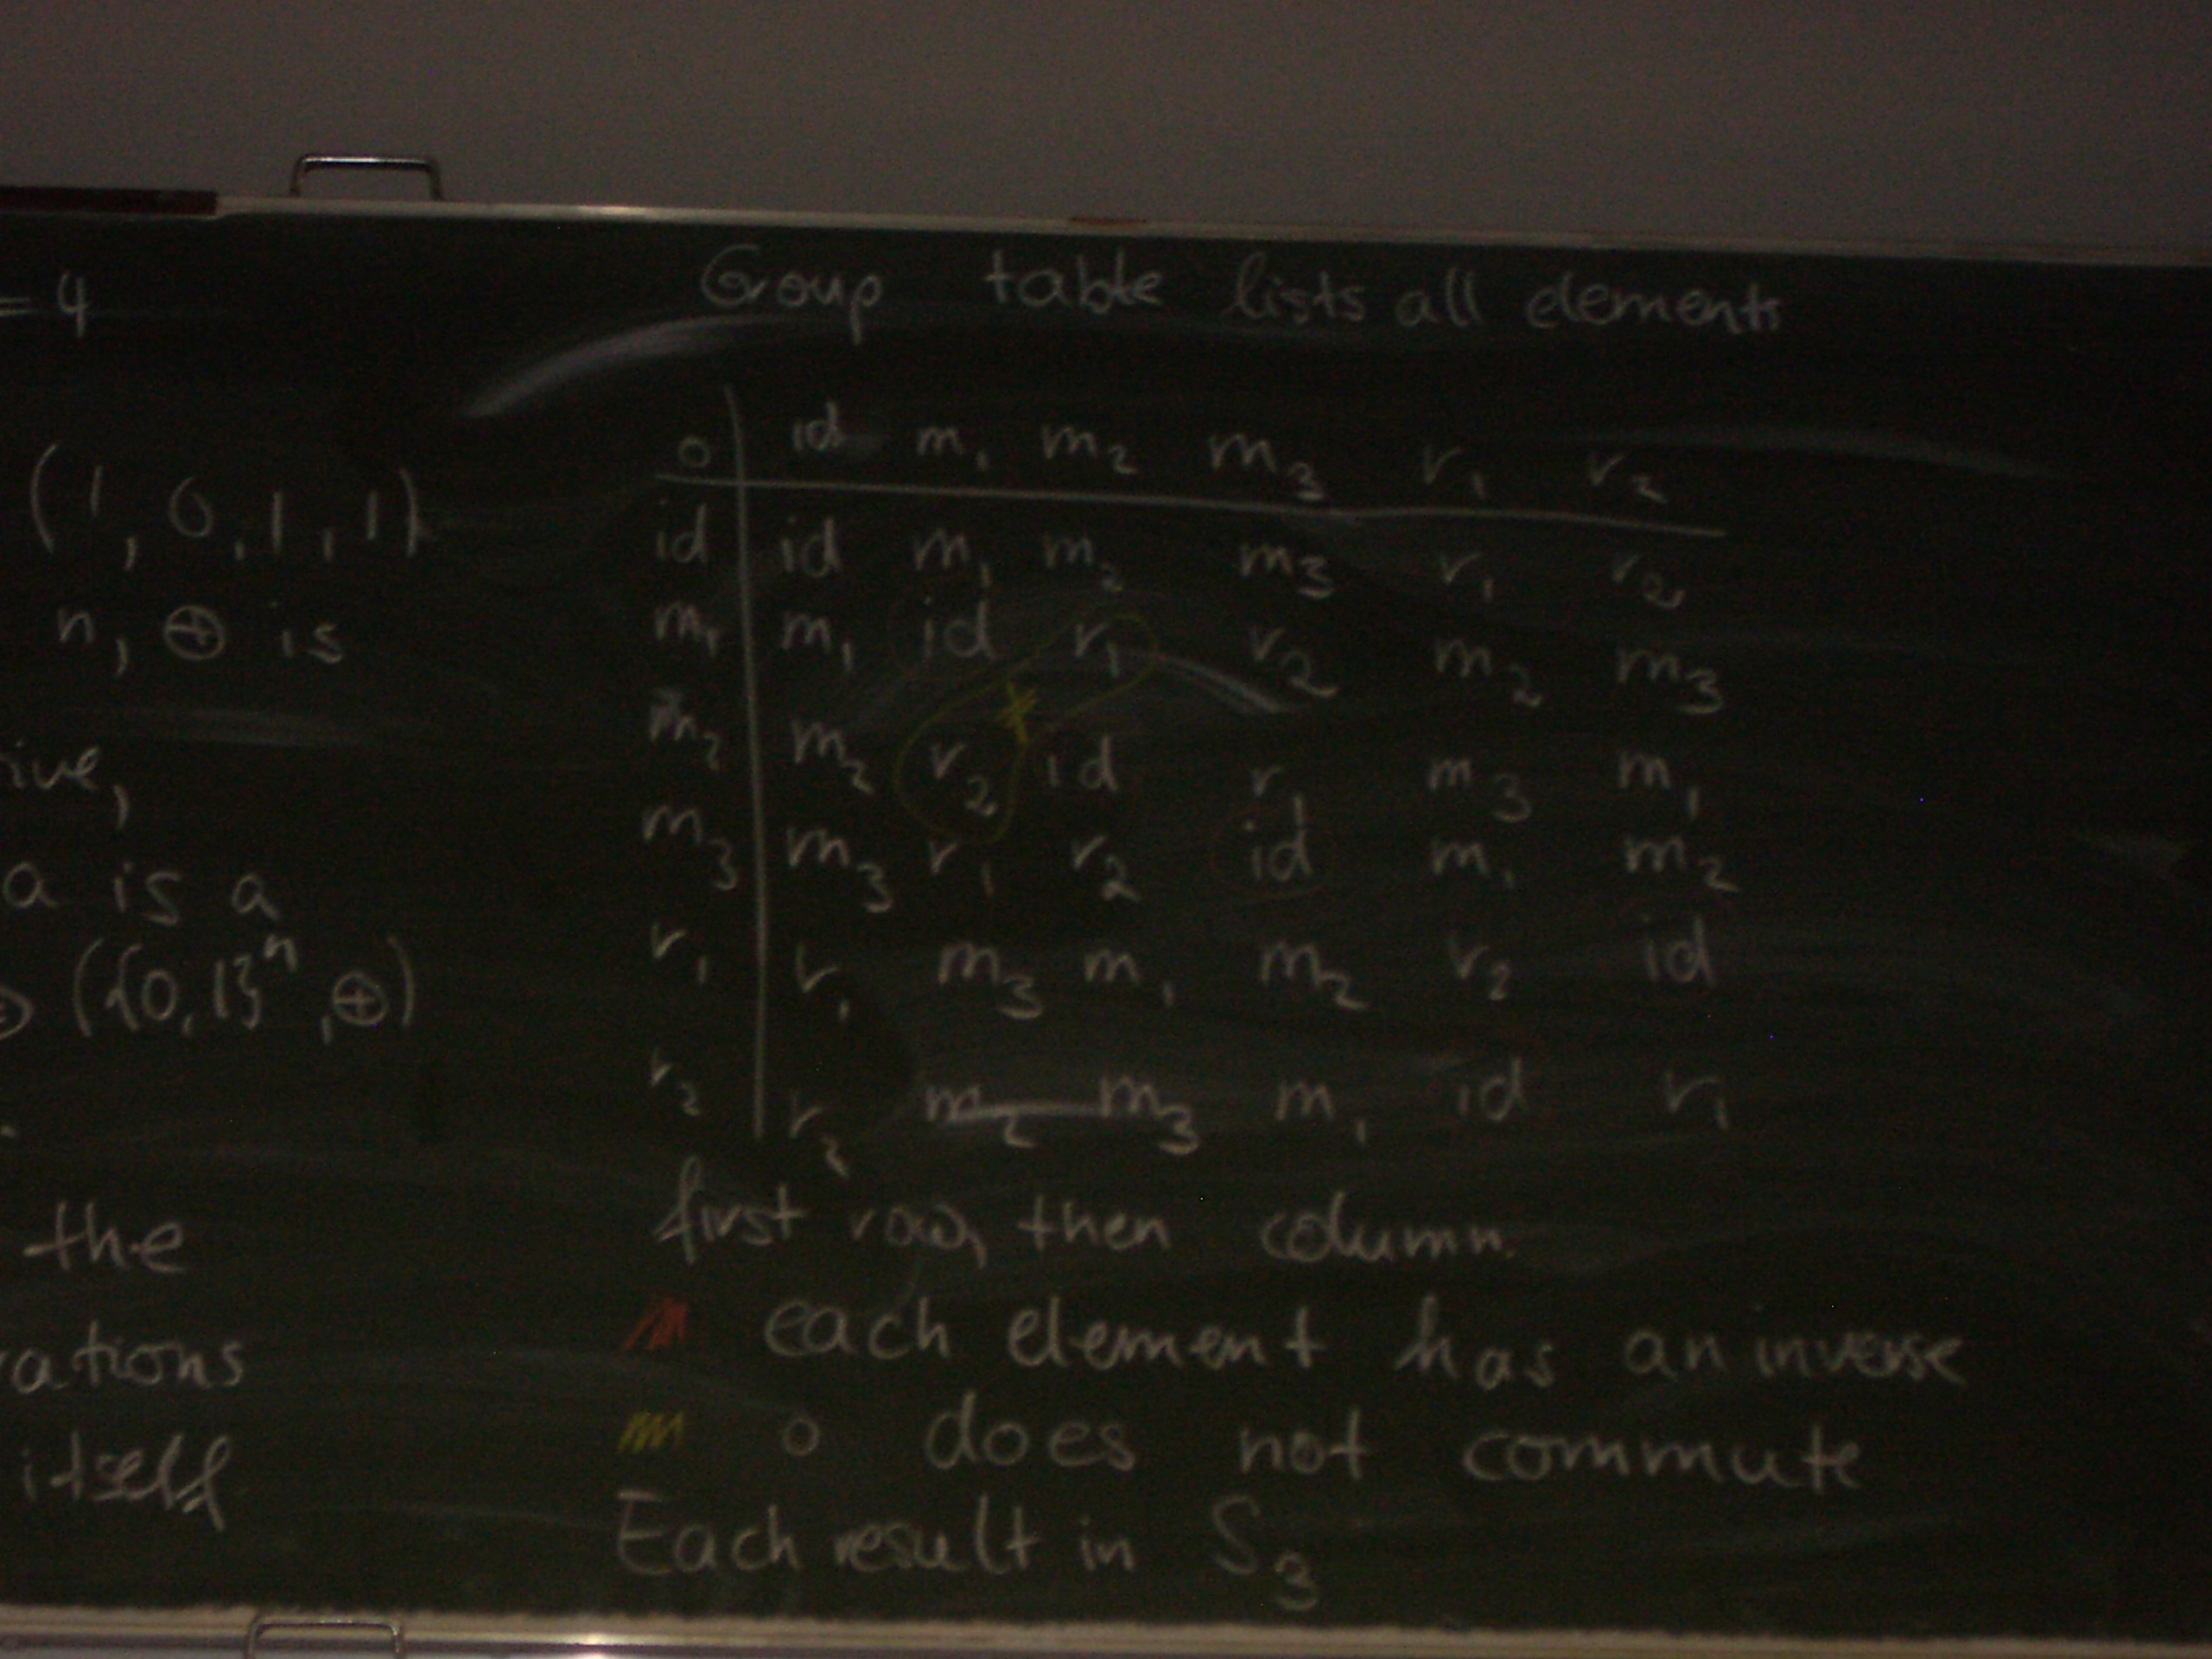 = 4
(1, 0, 1, 1)
n, ⊕ is
ive,
a is a
({0,1}ⁿ, ⊕)
the
rations
itself
Group table lists all elements
o id m₁ m₂ m₃ r₁ r₂
id id m₁ m₂ m₃ r₁ r₂
m₁ m₁ id r₁ r₂ m₂ m₃
m₂ m₂ r₂ id r₁ m₃ m₁
m₃ m₃ r₁ r₂ id m₁ m₂
r₁ r₁ m₃ m₁ m₂ r₂ id
r₂ r₂ m₂ m₃ m₁ id r₁
first row, then column.
each element has an inverse
o does not commute
Each result in S₃